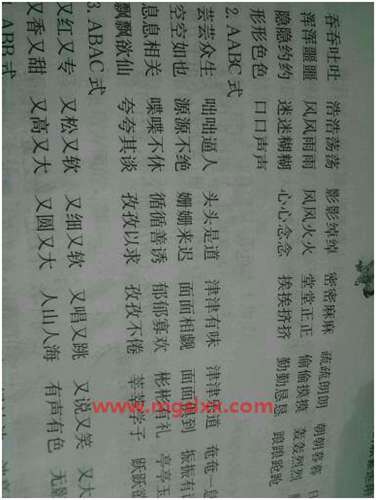 吞吞吐吐 浩浩荡荡 影影绰绰 密密麻麻 疏疏朗朗 朝朝暮暮
浑浑噩噩 风风雨雨 风风火火 堂堂正正 偷偷摸摸 轰轰烈烈
隐隐约约 迷迷糊糊 心心念念 挨挨挤挤 勤勤恳恳 踉踉跄跄
形形色色 口口声声
2. AABC 式
芸芸众生 咄咄逼人 头头是道 津津有味 津津乐道 奄奄一息
空空如也 源源不绝 姗姗来迟 面面相觑 面面俱到 振振有
息息相关 喋喋不休 循循善诱 郁郁寡欢 彬彬有礼 亭亭玉
飘飘欲仙 夸夸其谈 孜孜以求 孜孜不倦 莘莘学子 跃跃欲
3. ABAC 式
又红又专 又松又软 又细又软 又唱又跳 又说又笑 又大
又香又甜 又高又大 又圆又大 人山人海 有声有色 无影
ABB 式
www.mgdxx.com